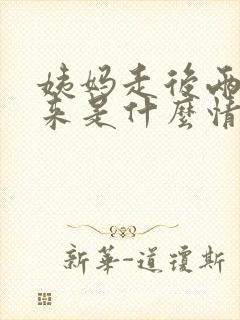 姨妈走后两
来是什麼情
新華-道瓊斯